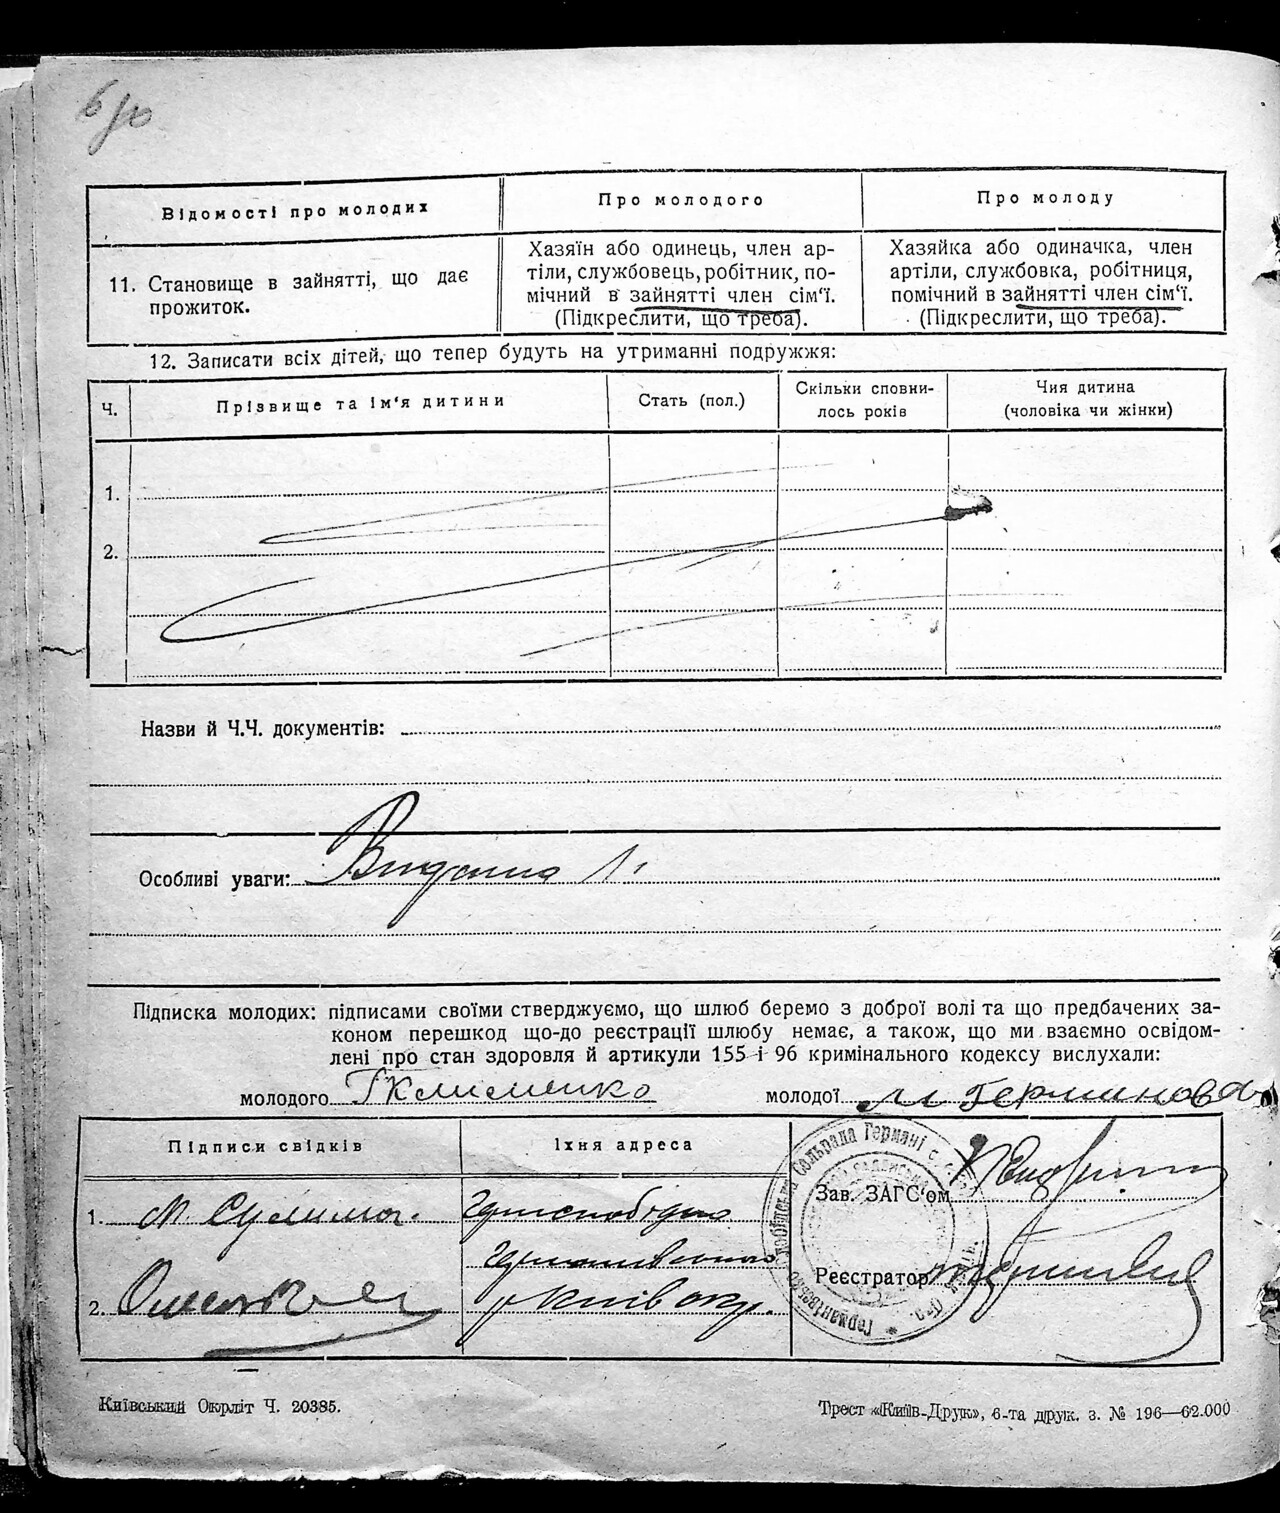 Відомості про молодих
Про молодого
Про молоду
11. Становище в зайнятті, що дає
прожиток.
Хазяїн або одинець, член ар-
тіли, службовець, робітник, по-
мічний в зайнятті член сім'ї.
(Підкреслити, що треба).
Хазяйка або одиначка, член
артіли, службовка, робітниця,
помічний в зайнятті член сім'ї.
(Підкреслити, що треба).
12. Записати всіх дітей, що тепер будуть на утриманні подружжя:
Ч.
Прізвище та ім'я дитини
Стать (пол.)
Скільки сповни-
лось років
Чия дитина
(чоловіка чи жінки)
1.
2.
Назви й Ч.Ч. документів:
Особливі уваги:
Підписка молодих: підписами своїми стверджуємо, що шлюб беремо з доброї волі та що предбачених за-
коном перешкод що-до реєстрації шлюбу немає, а також, що ми взаємно освідом-
лені про стан здоров'я й артикули 155 і 96 кримінального кодексу вислухали:
молодого Г Клименко
молодої М Германова
Підписи свідків
Їхня адреса
1. М. Сулима.
2.
Київ окр.
Сольрада
Зав. ЗАГС'ом
Реєстратор
Київський Окрліт Ч. 20385.
Трест «Київ-Друк», 6-та друк. з. № 196—62.000